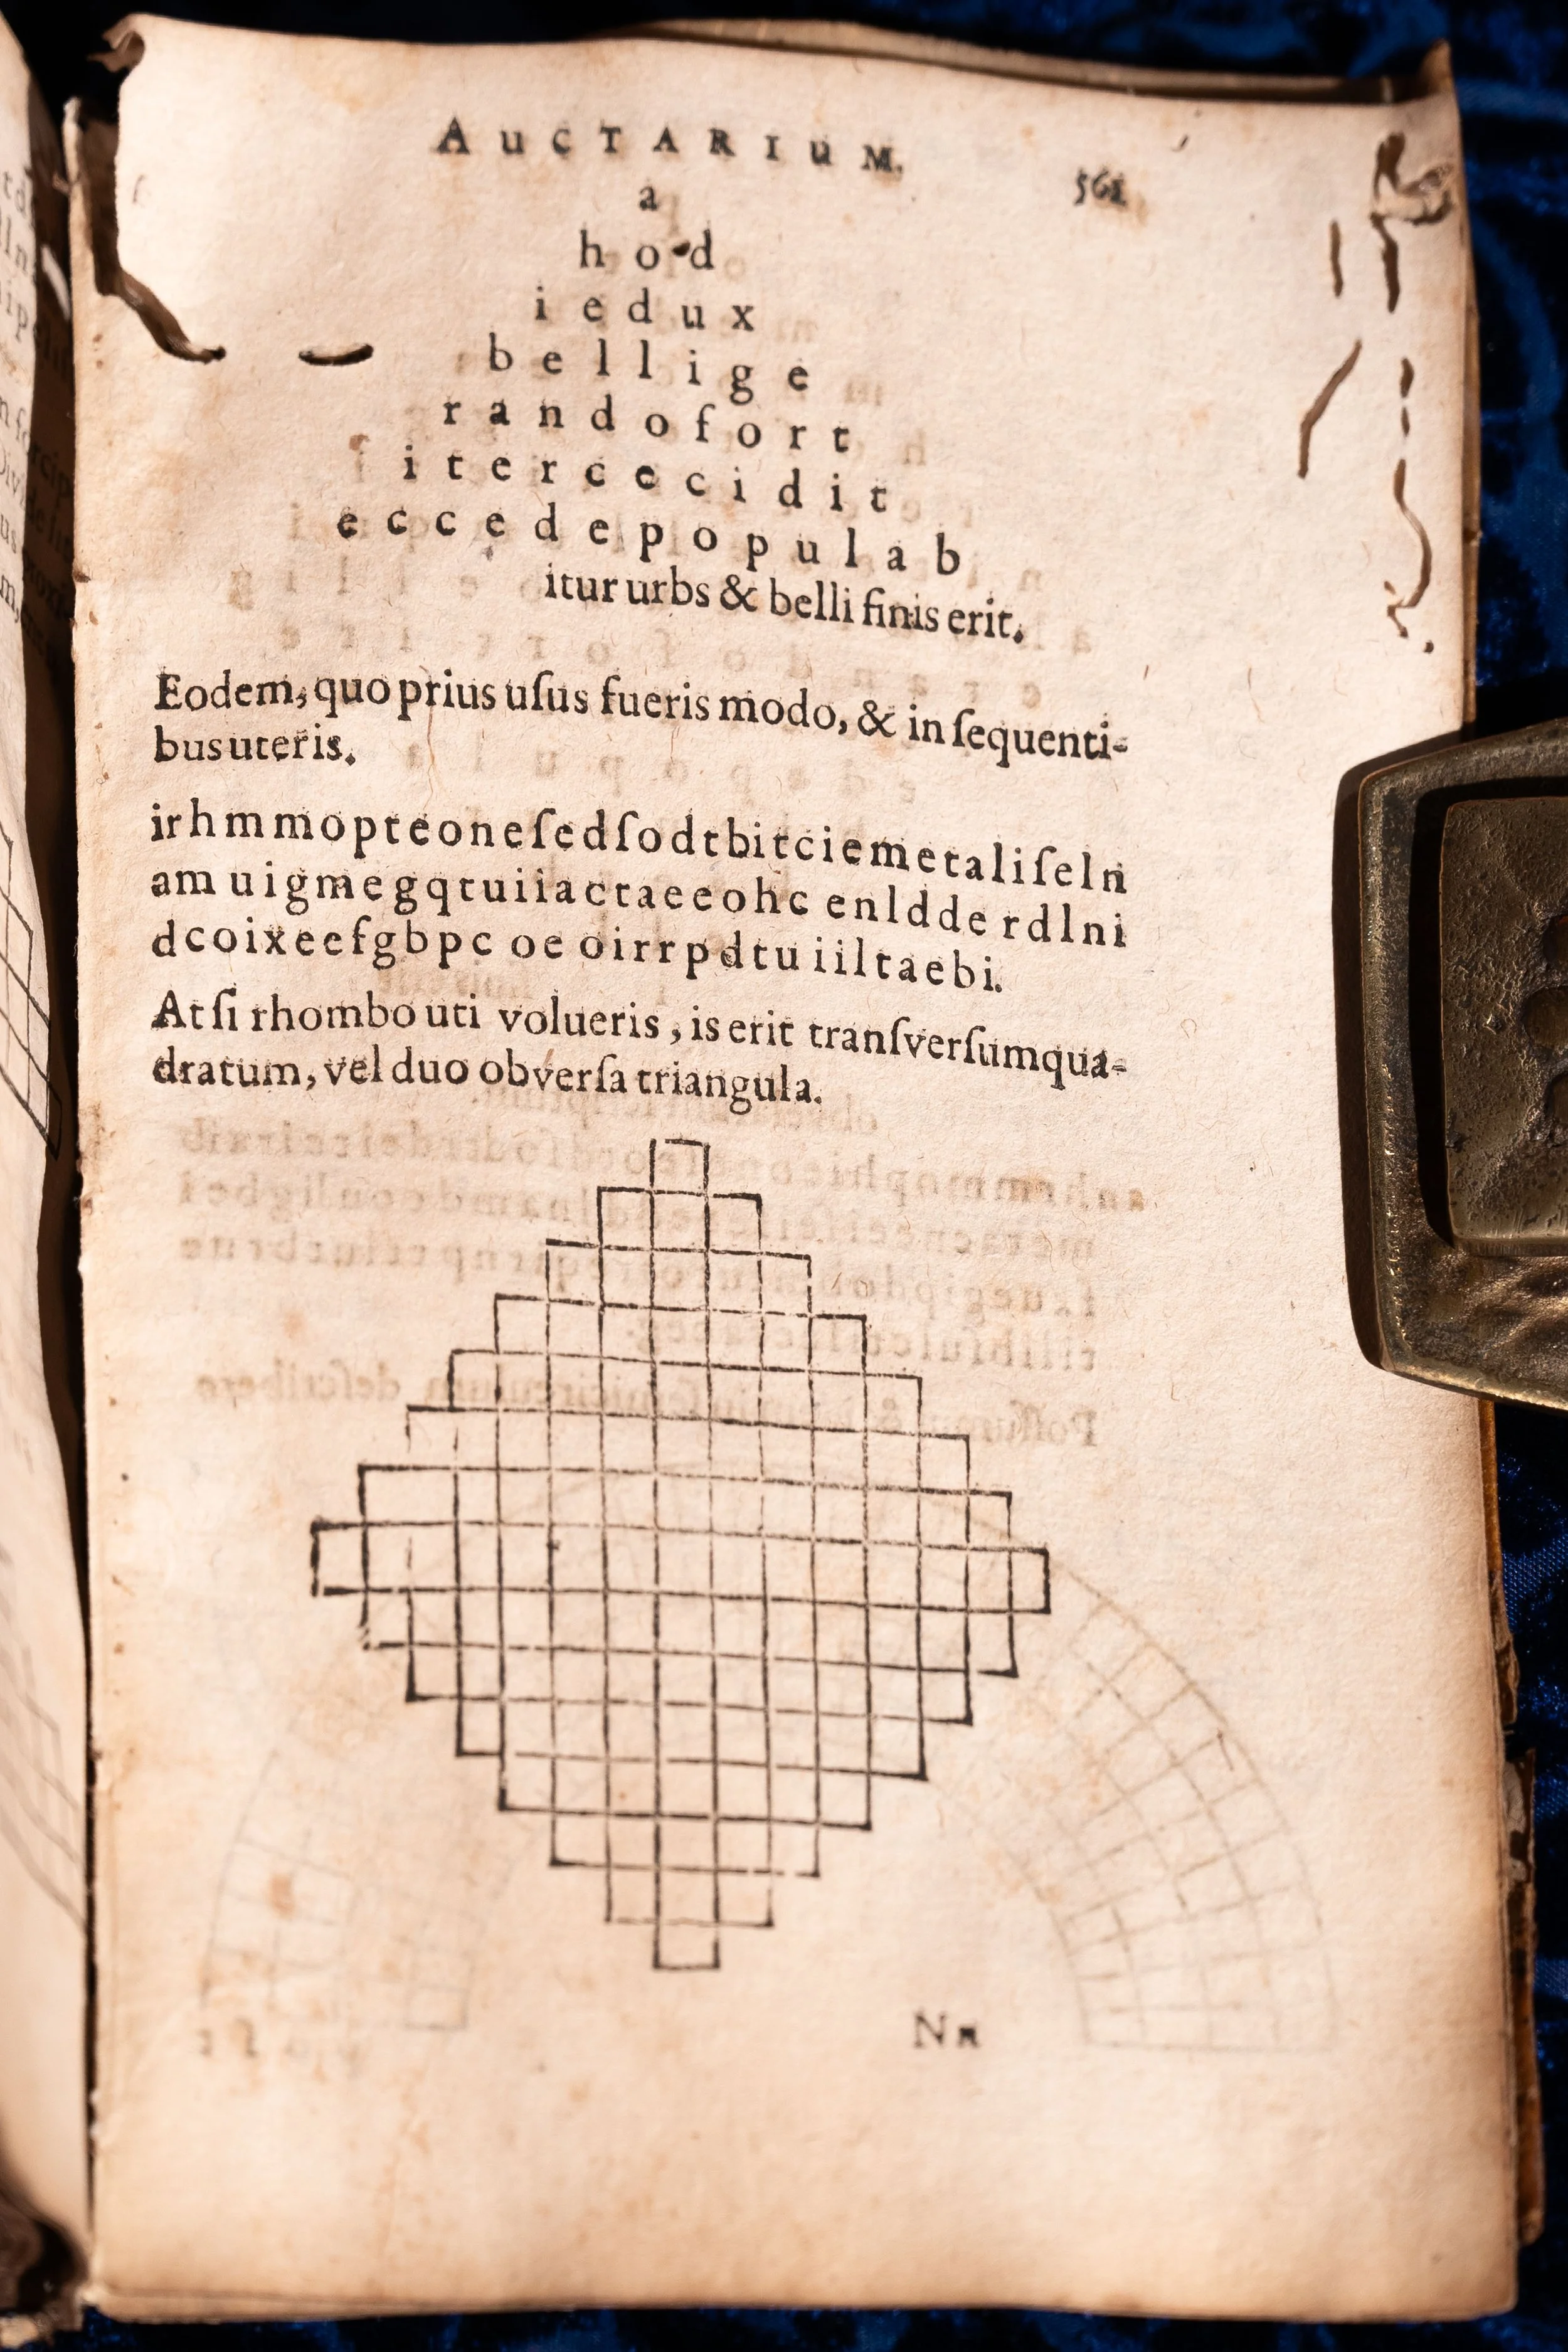 AUCTARIUM.
561
a
h o d
i e d u x
b e l l i g e
r a n d o f o r t
i t e r c e c i d i t
e c c e d e p o p u l a b
itur urbs & belli finis erit.
Eodem, quo prius uſus fueris modo, & in ſequenti-
bus uteris.
irhmmopteoneſedſodtbitciemetaliſeln
amuigmegqtuiiactaeeohc enldde rdlni
dcoixeefgbpc oe oirrpdtuiiltaebi.
At ſi rhombo uti volueris, is erit tranſverſum qua-
dratum, vel duo obverſa triangula.